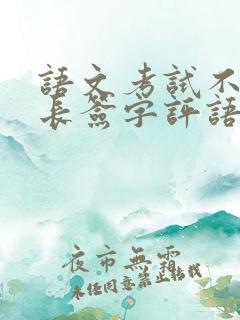 語文考試不
長簽字評語
夜市無霜
未經同意禁止轉載